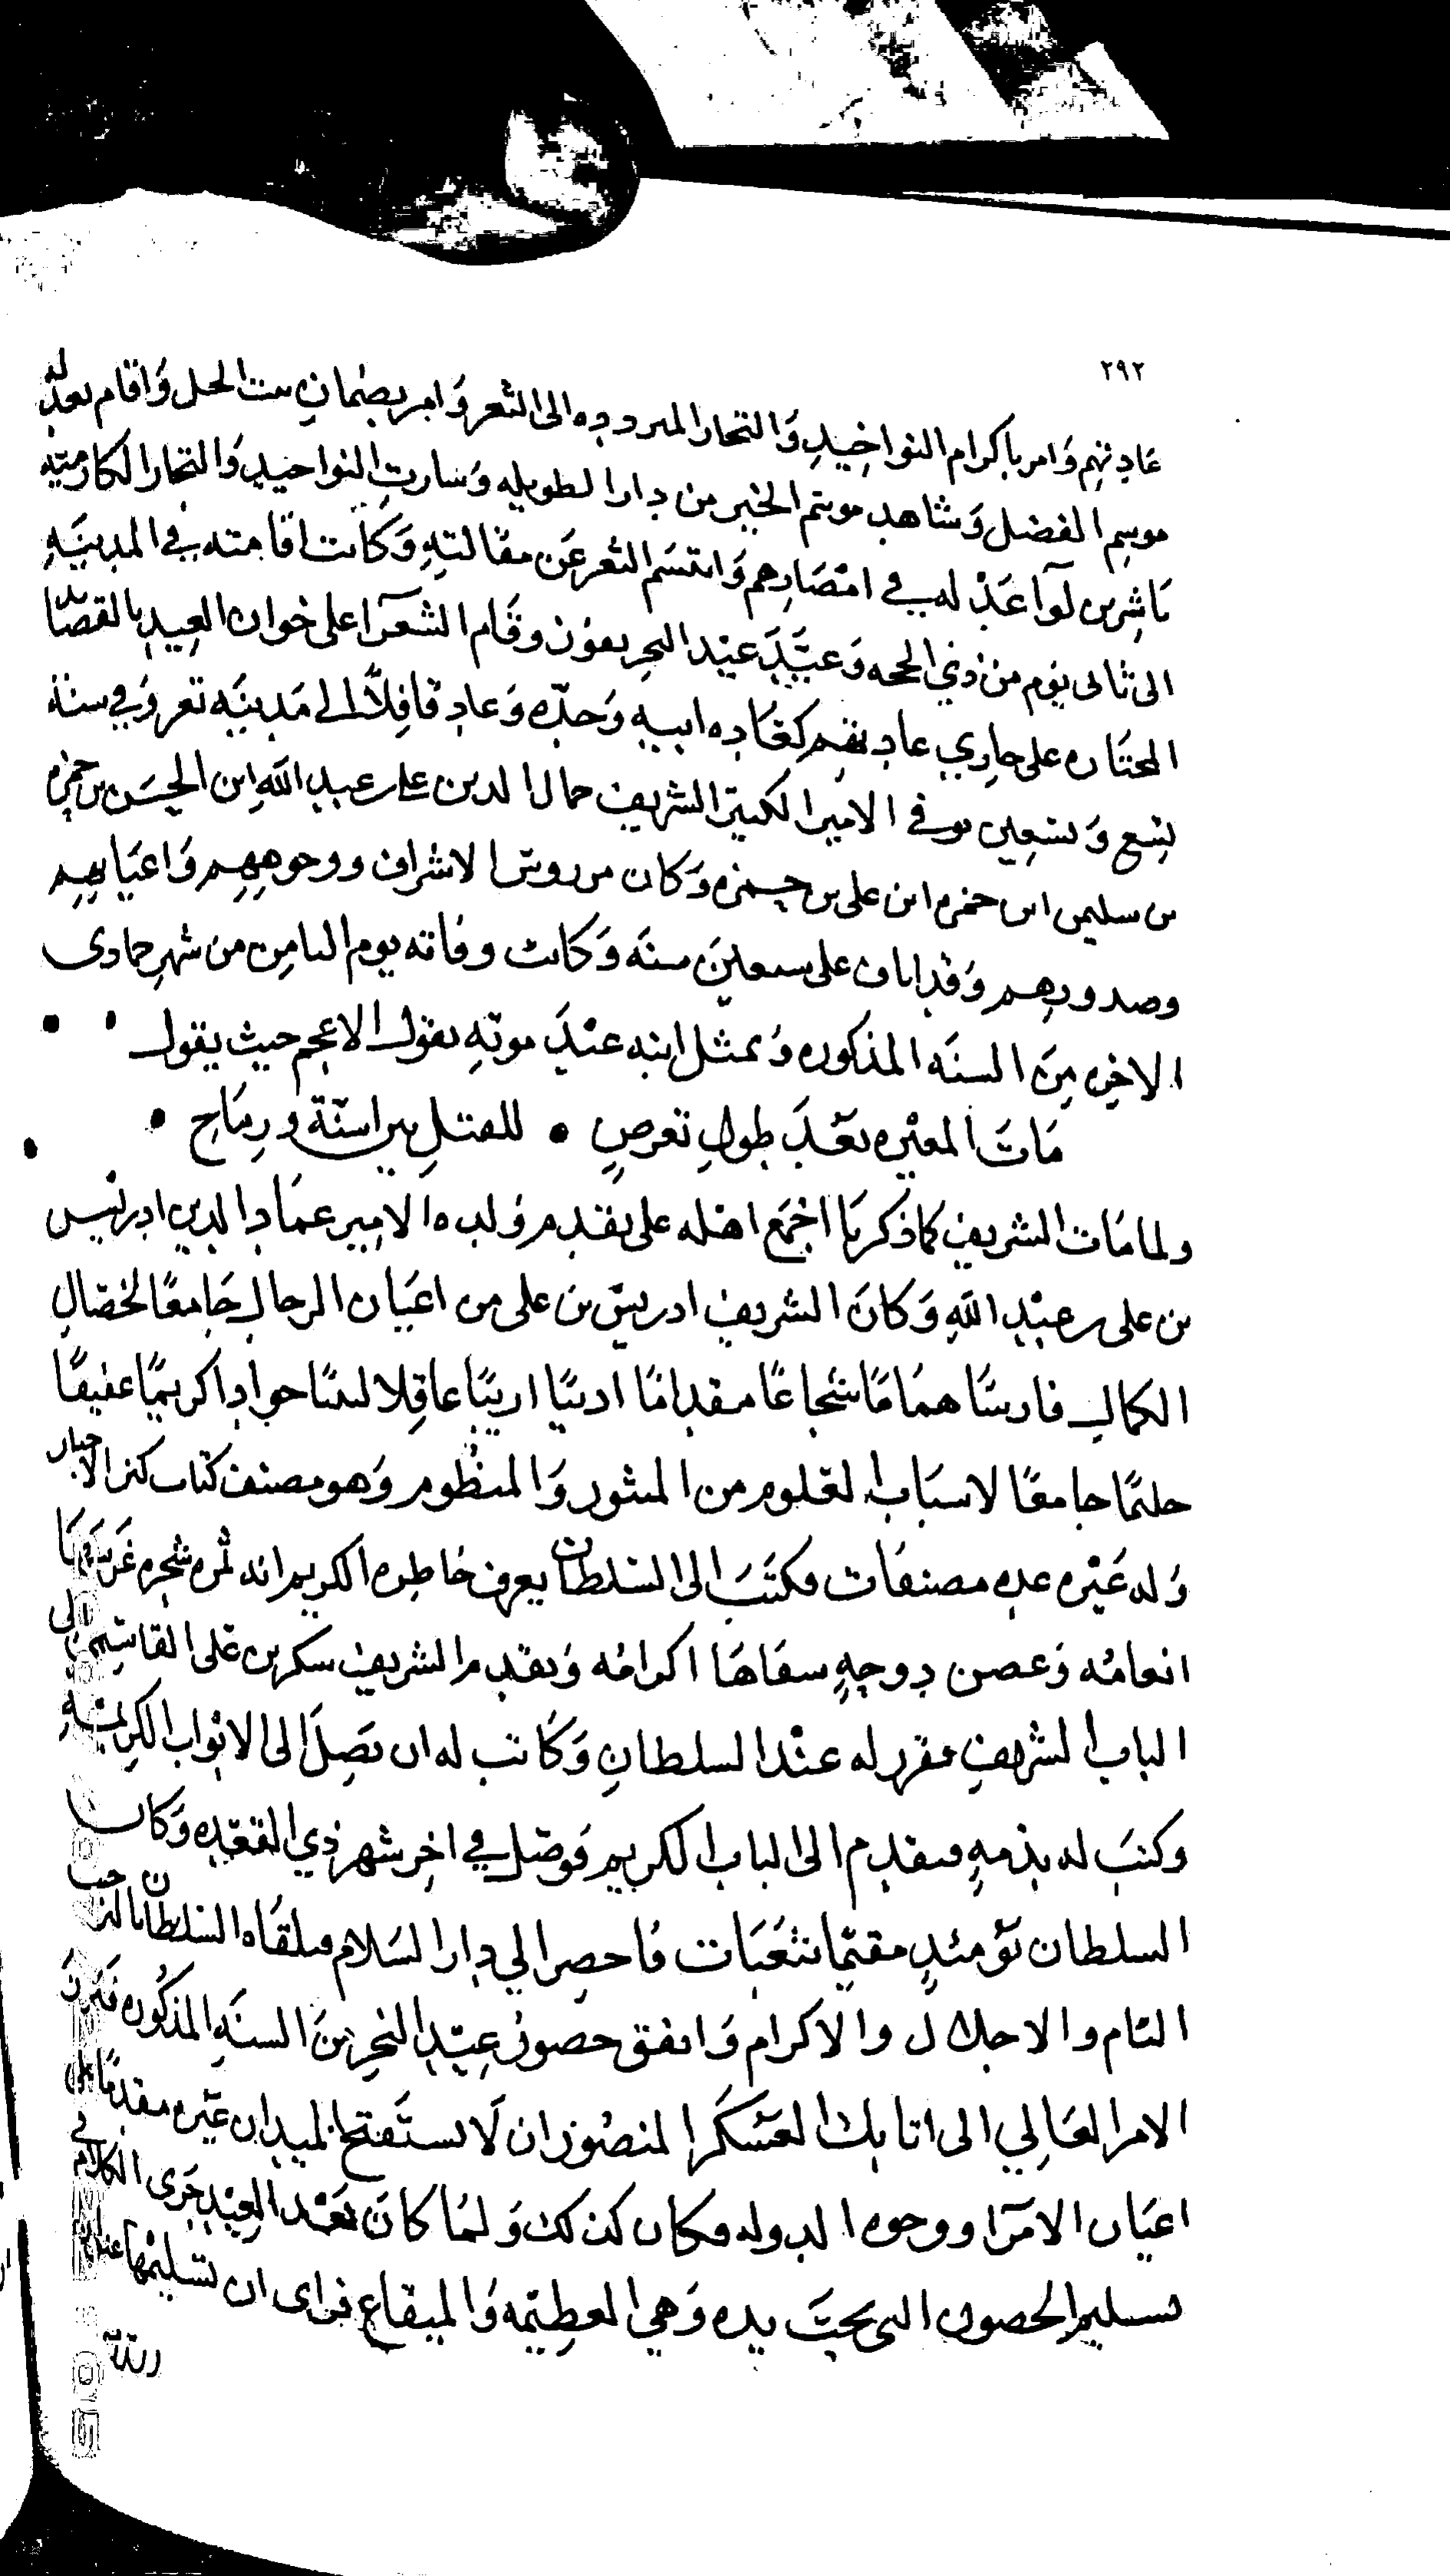 ٢٩٢
عادتهم وامر باكرام النواخيد والتجار المترددين الى الثغر وامر بضمان بيت الحل واقام بعدن
موسم الفضل وشاهد موسم الخيل من دار الطويله وسارت النواخيد والتجار الكارميه
ناشرين لوآ عدله في امصارهم وابتسم الثغر عن مقالته وكانت اقامته في المدينه
الى ثانى يوم من ذي الحجه وعيد عيد النحر بعون وقام الشعرآ على خوان العيد بالقصائد
المختاره على جاري عادتهم كعاده ابيه وجده وعاد قافلاً الى مدينه تعز وفي سنة
تسع وتسعين توفى الامير الكبير الشريف جمال الدين على بن عبد الله ابن الحسن بن حمزه
بن سليمن ابن حمزه ابن على بن حمزه وكان من روس الاشراف ووجوههم واعيانهم
وصدورهم وقد اناف على سبعين سنه وكانت وفاته يوم الثامن من شهر جمادى
الاخره من السنه المذكوره وتمثل ابنه عند موته بقول الاعجم حيث يقول
مات المغيره بعد طول تعرض • للقتل بين اسنة ورماح •
ولما مات الشريف كما ذكرنا اجمع اهله على تقديم ولده الامير عماد الدين ادريس
بن على بن عبد الله وكان الشريف ادريس بن على من اعيان الرجال جامعا لخصال
الكمال فارسا هماما شجاعا مقداما اديبا اريبا عاقلا لبيبا جوادا كريما عفيفا
حليما جامعا لاسباب العلوم من المنثور والمنظوم وهو مصنف كتاب كنز الاخبار
وله غيره عده مصنفات فكتب الى السلطان يعرف خاطره الكريم انه ثمره شجره غرسها
انعامه وغصن دوحه سقاها اكرامه وتقدم الشريف سكر بن على القاسمي الى
الباب الشريف مقرر له عند السلطان وكاتب له ان يصل الى الابواب الكريمه
وكتب له بذمه فتقدم الى الباب الكريم فوصل في اخر شهر ذي القعده وكان
السلطان يومئذ مقيما بثعبات فاحضر الي دار السلام فتلقاه السلطان بالترحيب
التام والاجلال والاكرام واتفق حضور عيد النحر من السنه المذكوره فبرز
الامر العالي الى اتابك العسكر المنصور ان لا يستفتح الميدان غيره مقدما على
اعيان الامرآ ووجوه الدوله فكان كذلك ولما كان بعد العيد جرى الكلام في
تسليم الحصون التى تحت يده وهي العظيمه والميقاع فراى ان تسليمها